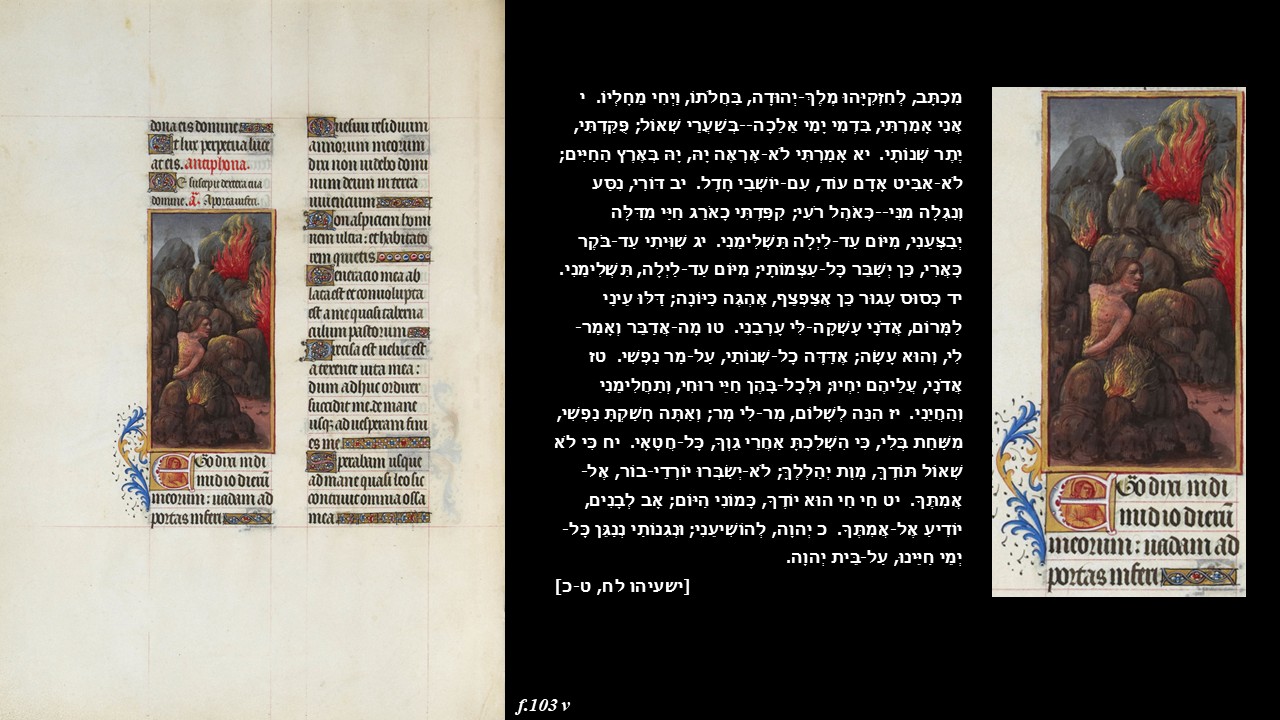 dona eis domine
Et lux perpetua luce
at eis. antiphona.
Me suscepit dextera tua
domine. a. A porta inferi.
Ego dixi in di
midio dierū
meorum: uadam ad
portas inferi
Quesiui residuum
annorum meorum
dixi non uidebo domi
num deum in terra
uiuencium
Non aspiciam homi
nem ultra: et habitato
rem quietis
Generacio mea ab
lata est et conuolupta
est a me quasi taberna
culum pastorum
Precisa est uelut est
a texente uita mea:
dum adhuc ordirer
succidit me. de mane
usqꝫ ad uesperam fini
es me
Sperabam usque
ad mane quasi leo sic
contriuit omnia ossa
mea
מִכְתָּב, לְחִזְקִיָּהוּ מֶלֶךְ-יְהוּדָה, בַּחֲלֹתוֹ, וַיְחִי מֵחָלְיוֹ. י
אֲנִי אָמַרְתִּי, בִּדְמִי יָמַי אֵלֵכָה--בְּשַׁעֲרֵי שְׁאוֹל; פֻּקַּדְתִּי,
יֶתֶר שְׁנוֹתָי. יא אָמַרְתִּי לֹא-אֶרְאֶה יָהּ, יָהּ בְּאֶרֶץ הַחַיִּים;
לֹא-אַבִּיט אָדָם עוֹד, עִם-יוֹשְׁבֵי חָדֶל. יב דּוֹרִי, נִסַּע
וְנִגְלָה מִנִּי--כְּאֹהֶל רֹעִי; קִפַּדְתִּי כָאֹרֵג חַיַּי מִדַּלָּה
יְבַצְּעֵנִי, מִיּוֹם עַד-לַיְלָה תַּשְׁלִימֵנִי. יג שִׁוִּיתִי עַד-בֹּקֶר
כָּאֲרִי, כֵּן יְשַׁבֵּר כָּל-עַצְמוֹתָי; מִיּוֹם עַד-לַיְלָה, תַּשְׁלִימֵנִי.
יד כְּסוּס עָגוּר כֵּן אֲצַפְצֵף, אֶהְגֶּה כַּיּוֹנָה; דַּלּוּ עֵינַי
לַמָּרוֹם, אֲדֹנָי עָשְׁקָה-לִּי עָרְבֵנִי. טו מָה-אֲדַבֵּר וְאָמַר-
לִי, וְהוּא עָשָׂה; אֶדַּדֶּה כָל-שְׁנוֹתַי, עַל-מַר נַפְשִׁי. טז
אֲדֹנָי, עֲלֵיהֶם יִחְיוּ; וּלְכָל-בָּהֶן חַיֵּי רוּחִי, וְתַחֲלִימֵנִי
וְהַחֲיֵנִי. יז הִנֵּה לְשָׁלוֹם, מַר-לִי מָר; וְאַתָּה חָשַׁקְתָּ נַפְשִׁי,
מִשַּׁחַת בְּלִי, כִּי הִשְׁלַכְתָּ אַחֲרֵי גֵוְךָ, כָּל-חֲטָאָי. יח כִּי לֹא
שְׁאוֹל תּוֹדֶךָּ, מָוֶת יְהַלְלֶךָּ; לֹא-יְשַׂבְּרוּ יוֹרְדֵי-בוֹר, אֶל-
אֲמִתֶּךָ. יט חַי חַי הוּא יוֹדֶךָ, כָּמוֹנִי הַיּוֹם; אָב לְבָנִים,
יוֹדִיעַ אֶל-אֲמִתֶּךָ. כ יְהוָה, לְהוֹשִׁיעֵנִי; וּנְגִנוֹתַי נְנַגֵּן כָּל-
יְמֵי חַיֵּינוּ, עַל-בֵּית יְהוָה.
[ישעיהו לח, ט-כ]
Ego dixi in di
midio dierū
meorum: uadam ad
portas inferi
f.103 v